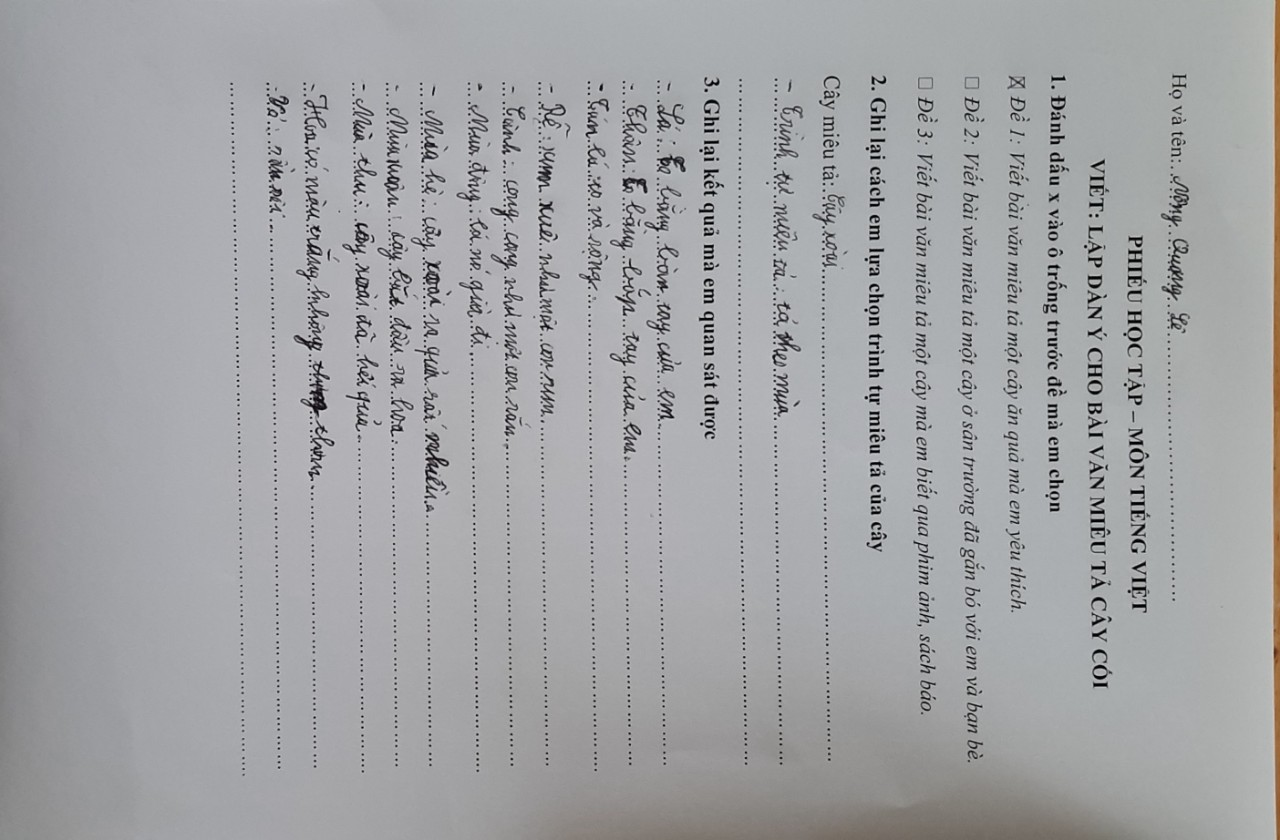 Họ và tên: Nông Quang Lê
PHIẾU HỌC TẬP – MÔN TIẾNG VIỆT
VIẾT: LẬP DÀN Ý CHO BÀI VĂN MIÊU TẢ CÂY CỐI
1. Đánh dấu x vào ô trống trước đề mà em chọn
☒ Đề 1: Viết bài văn miêu tả một cây ăn quả mà em yêu thích.
☐ Đề 2: Viết bài văn miêu tả một cây ở sân trường đã gắn bó với em và bạn bè.
☐ Đề 3: Viết bài văn miêu tả một cây mà em biết qua phim ảnh, sách báo.
2. Ghi lại cách em lựa chọn trình tự miêu tả của cây
Cây miêu tả: Cây xoài
- Trình tự miêu tả: tả theo mùa
3. Ghi lại kết quả mà em quan sát được
- Lá: to bằng bàn tay của em
- Thân: to bằng bắp tay của em.
- Tán lá: to và rộng.
- Rễ: xum xuê như một con
- Cành: cong cong như một con rắn.
- Mùa đông: lá nó già đi
- Mùa hè: cây xoài ra quả rất nhiều.
- Mùa xuân: cây bắt đầu ra hoa
- Mùa thu: cây xoài đã hết quả.
- Hoa có màu trắng không thơm
- Vỏ: sần sùi.